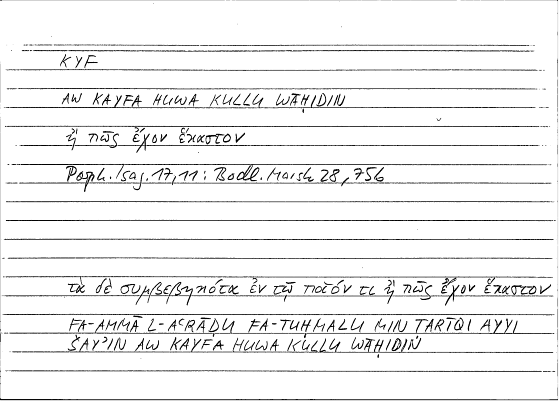 KYF
AW KAYFA HUWA KULLU WĀḤIDIN
ἢ πῶς ἔχον ἕκαστον
Porph. Isag. 17,11: Bodl. Marsh 28, 756
τὰ δὲ συμβεβηκότα ἐν τῷ ποῖόν τι ἢ πῶς ἔχον ἕκαστον
FA-AMMĀ L-AʿRĀḌU FA-TUḤMALU MIN ṬARĪQI AYYI
ŠAYʾIN AW KAYFA HUWA KULLU WĀḤIDIN